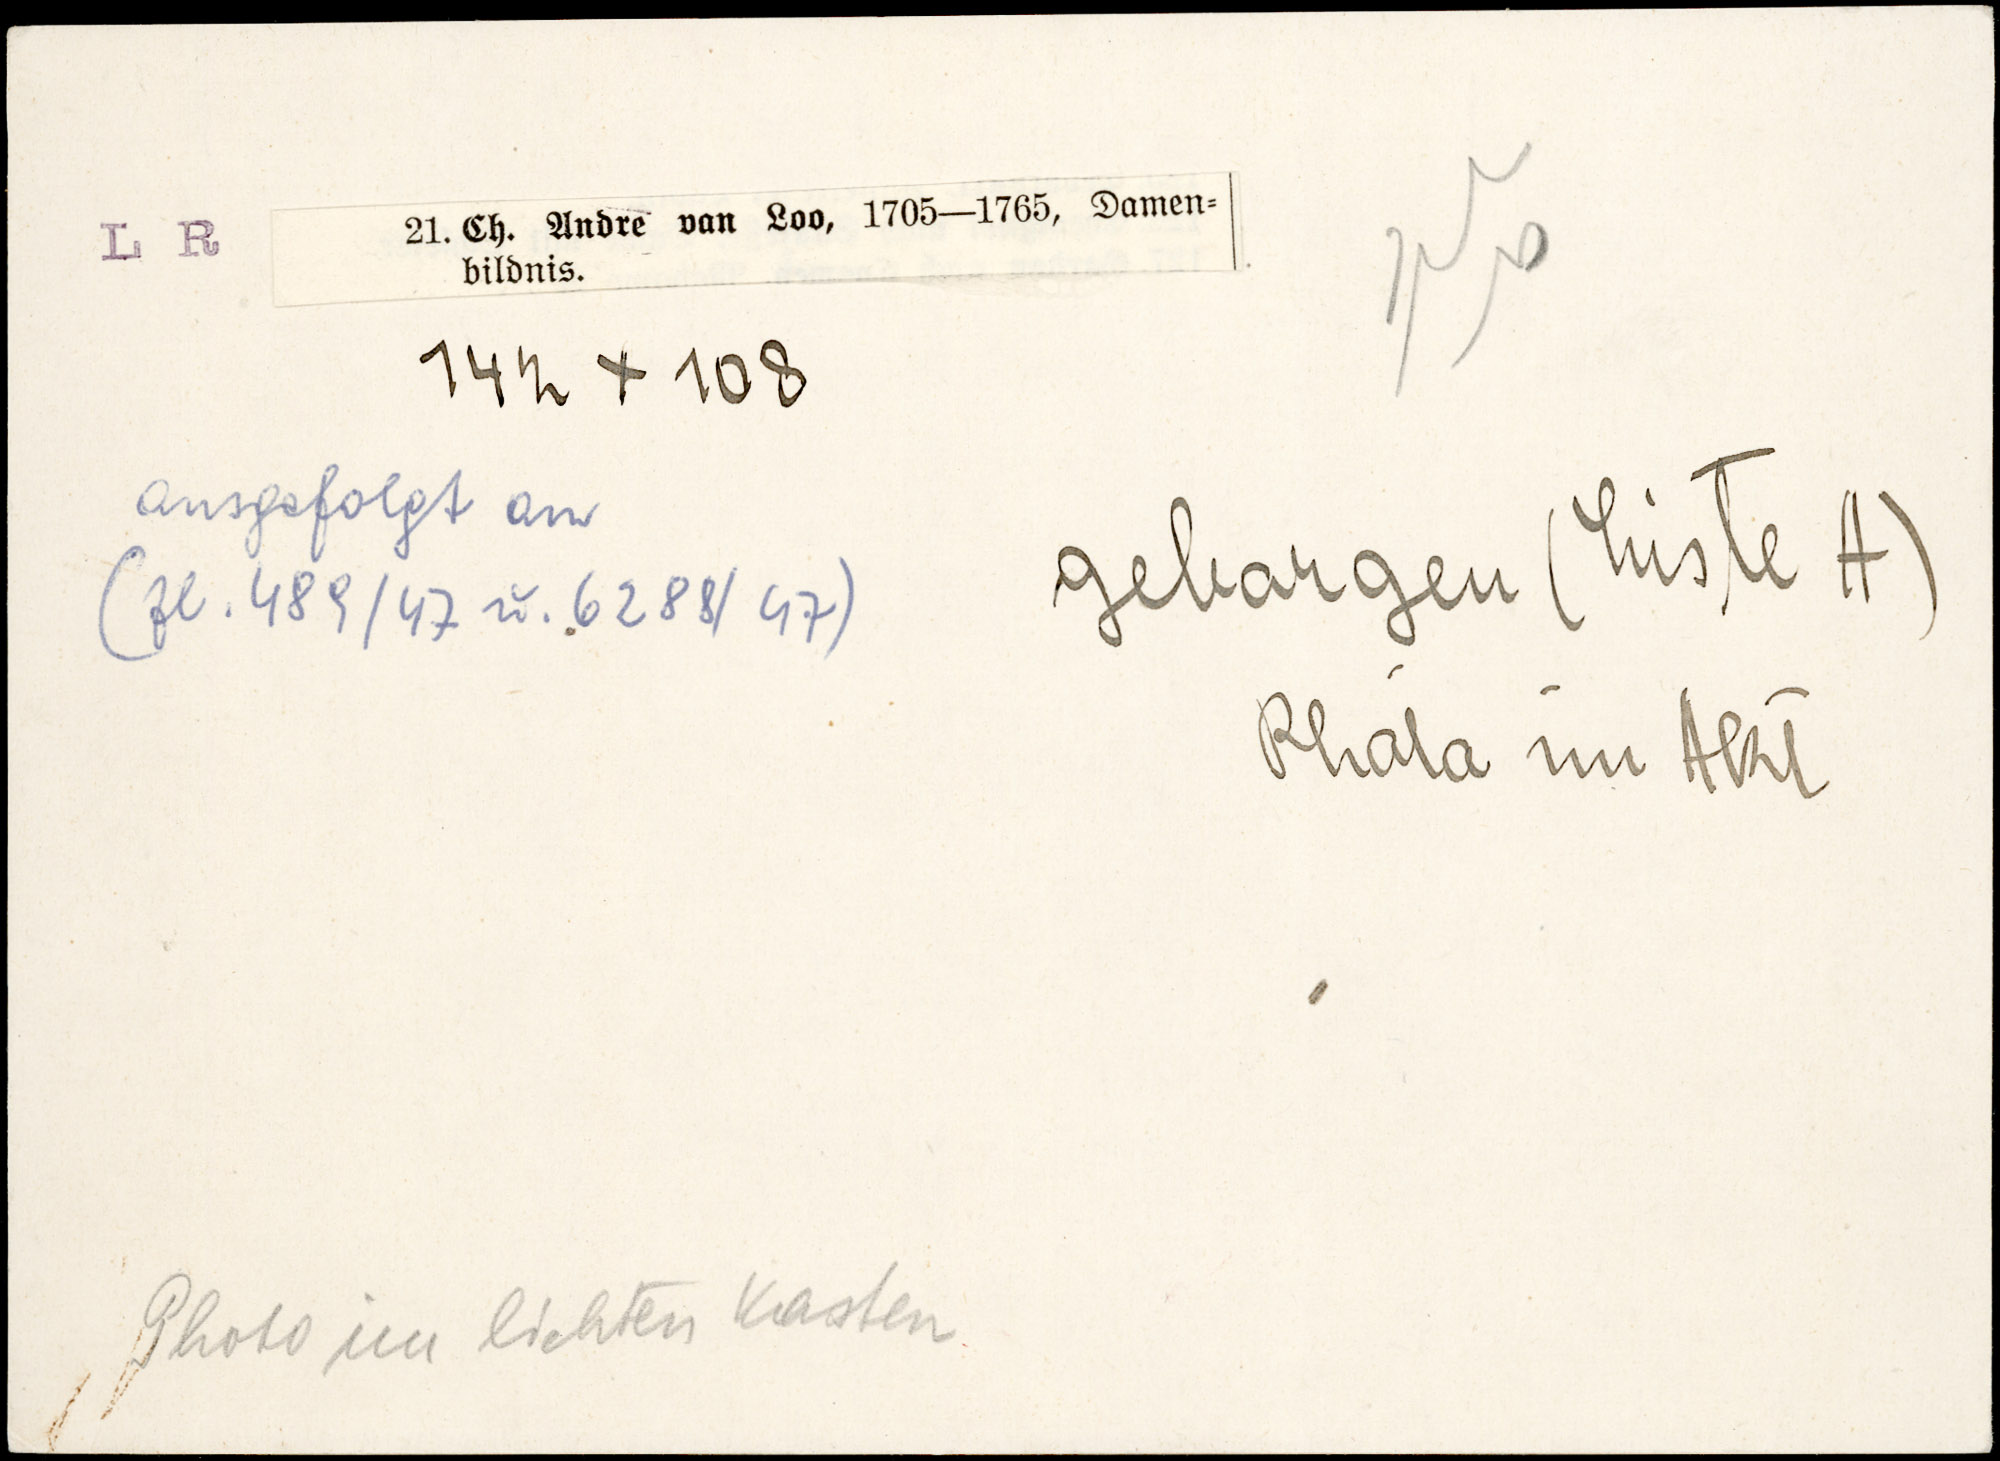 L R
21. Ch. Andre van Loo, 1705—1765, Damen-
bildnis.
142 x 108
ausgefolgt an
(Zl. 489/47 u. 6288/47)
geborgen (Liste A)
Photo im Akt
Photo im lichten Kasten